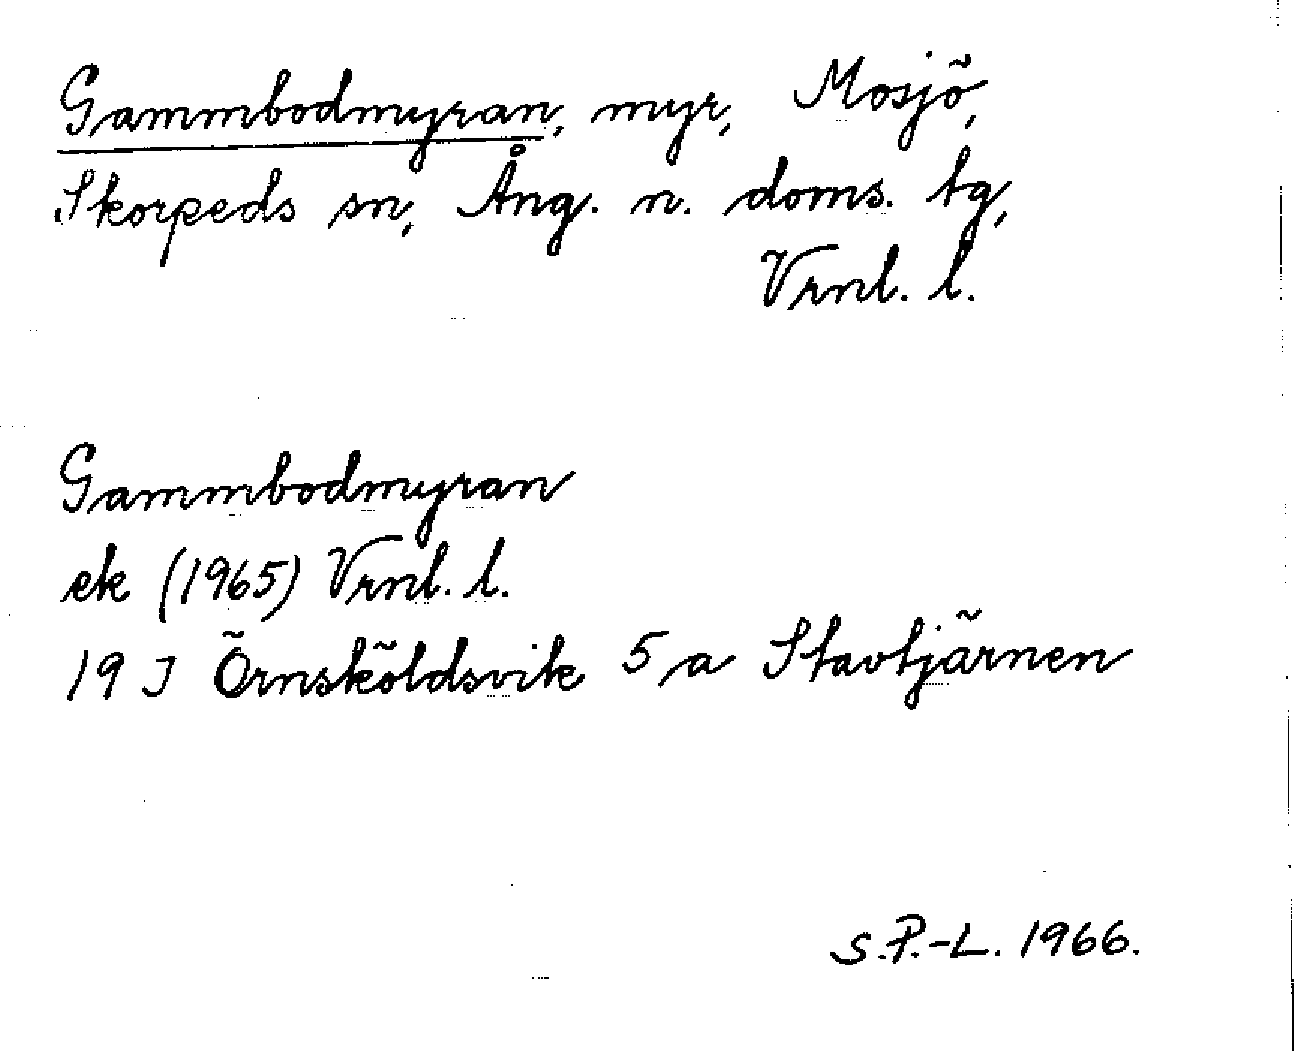 Gammbodmyran, myr, Mosjö,
Skorpeds sn, Ång. n. doms. tg,
Vrnl. l.
Gammbodmyran
ek (1965) Vrnl. l.
19 J Örnsköldsvik 5 a Stavtjärnen
S.P.-L. 1966.